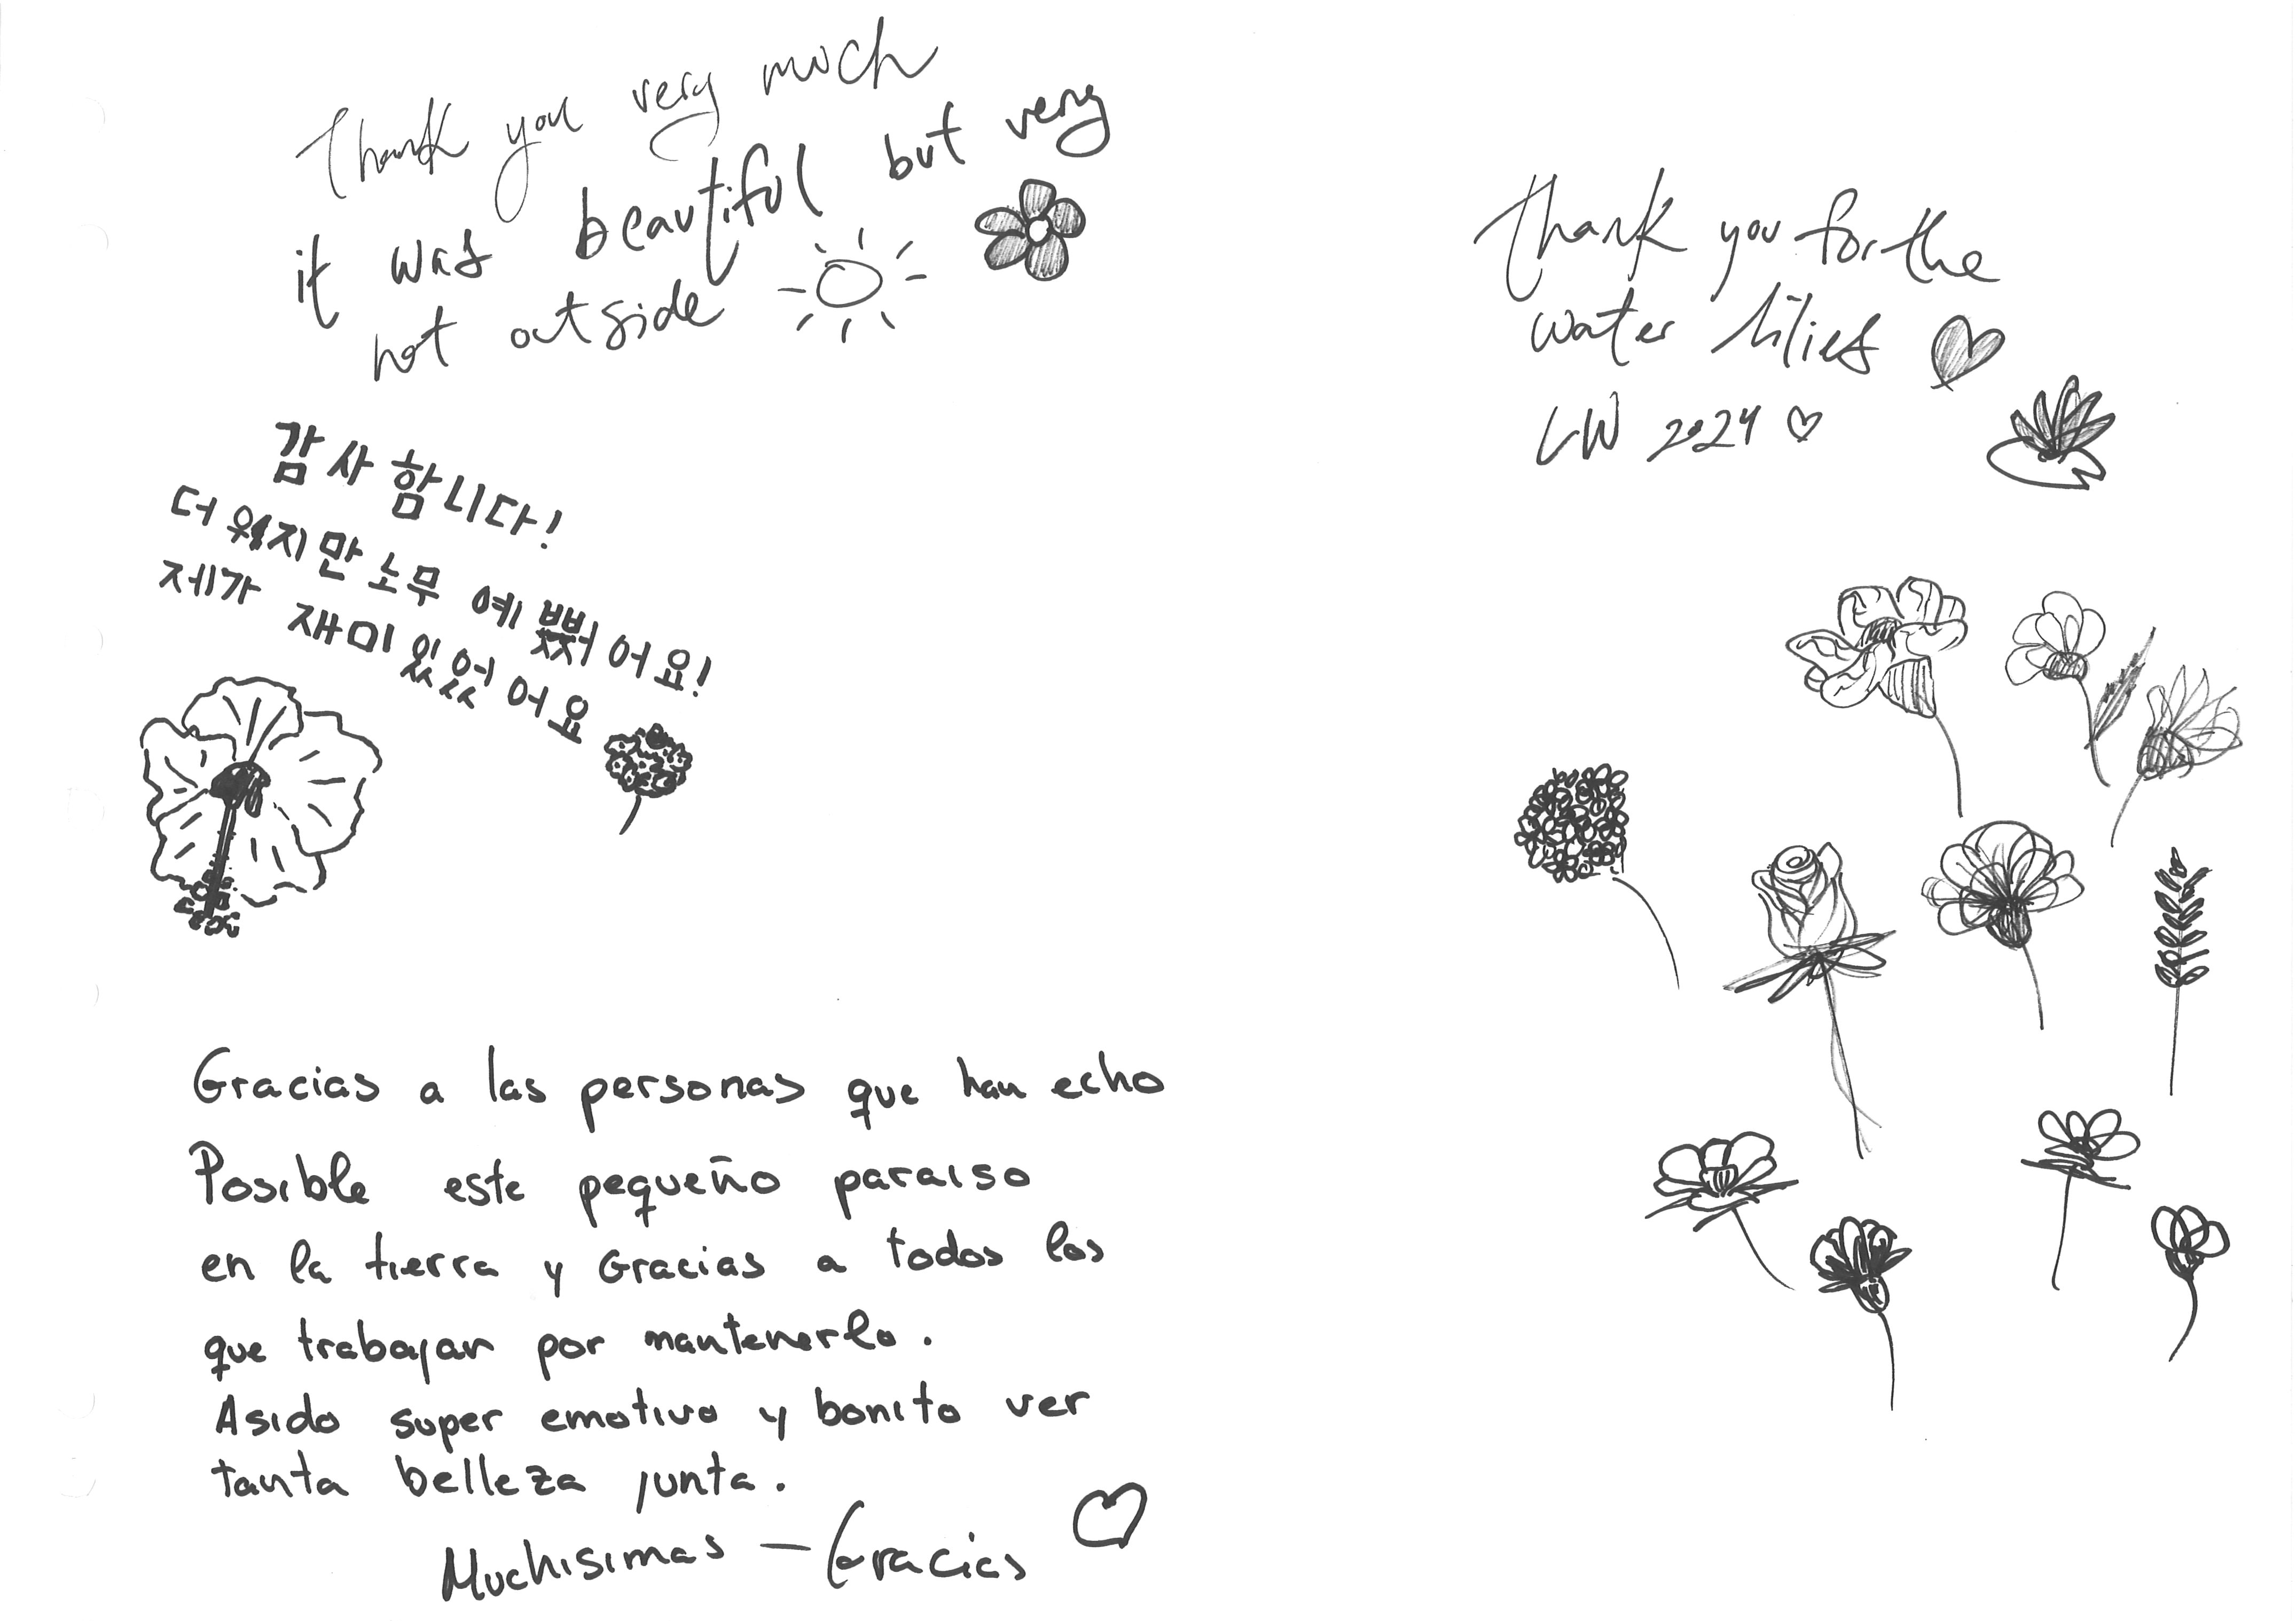 Thank you very much
it was beautiful but very
hot outside
감사합니다!
더웠지만 노무 예뻤어요!
제가 재미있었어요
Gracias a las personas que han echo
Posible este pequeño paraiso
en la tierra y Gracias a todos los
que trabajan por mantenerlo.
Asido super emotivo y bonito ver
tanta belleza junta.
Muchisimas — Gracias
Thank you for the
water lilies
LW 2024